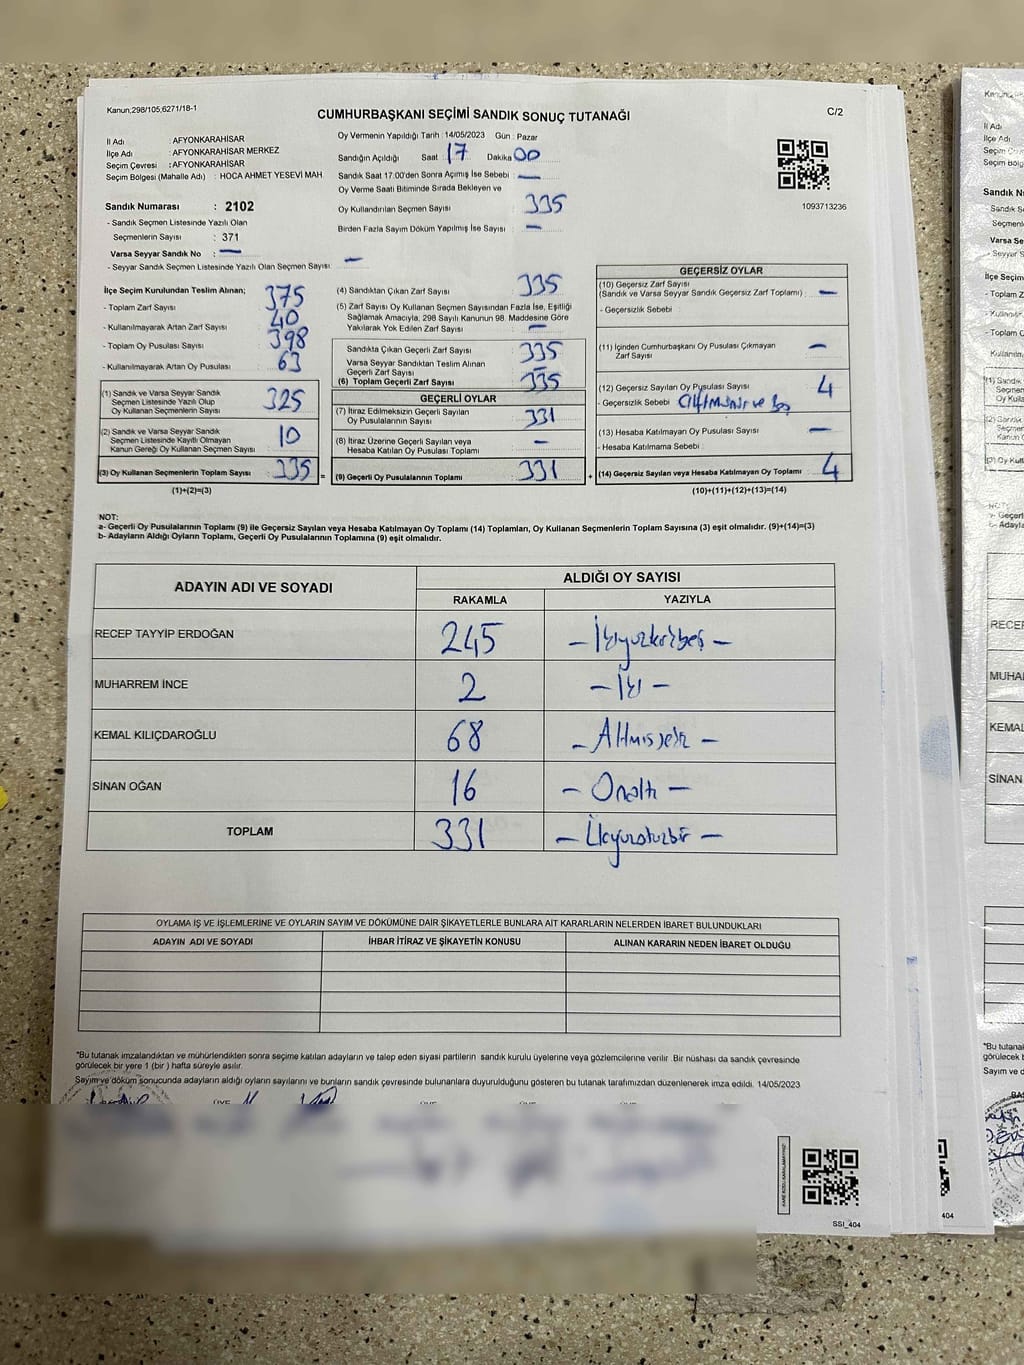 Kanun;298/105,6271/18-1
CUMHURBAŞKANI SEÇİMİ SANDIK SONUÇ TUTANAĞI
C/2
İl Adı : AFYONKARAHİSAR
İlçe Adı : AFYONKARAHİSAR MERKEZ
Seçim Çevresi : AFYONKARAHİSAR
Seçim Bölgesi (Mahalle Adı) : HOCA AHMET YESEVİ MAH
Sandık Numarası : 2102
- Sandık Seçmen Listesinde Yazılı Olan
Seçmenlerin Sayısı : 371
Varsa Seyyar Sandık No : —
- Seyyar Sandık Seçmen Listesinde Yazılı Olan Seçmen Sayısı: —
Oy Vermenin Yapıldığı Tarih : 14/05/2023 Gün : Pazar
Sandığın Açıldığı Saat 17 Dakika 00
Sandık Saat 17:00'den Sonra Açımış İse Sebebi : —
Oy Verme Saati Bitiminde Sırada Bekleyen ve
Oy Kullandırılan Seçmen Sayısı 335
Birden Fazla Sayım Döküm Yapılmış İse Sayısı : —
1093713236
İlçe Seçim Kurulundan Teslim Alınan;
- Toplam Zarf Sayısı 375
- Kullanılmayarak Artan Zarf Sayısı 40
- Toplam Oy Pusulası Sayısı 398
- Kullanılmayarak Artan Oy Pusulası 63
(1) Sandık ve Varsa Seyyar Sandık
Seçmen Listesinde Yazılı Olup
Oy Kullanan Seçmenlerin Sayısı 325
(2) Sandık ve Varsa Seyyar Sandık
Seçmen Listesinde Kayıtlı Olmayan
Kanun Gereği Oy Kullanan Seçmen Sayısı 10
(3) Oy Kullanan Seçmenlerin Toplam Sayısı 335
(1)+(2)=(3)
=
(4) Sandıktan Çıkan Zarf Sayısı 335
(5) Zarf Sayısı Oy Kullanan Seçmen Sayısından Fazla İse, Eşitliği
Sağlamak Amacıyla, 298 Sayılı Kanunun 98. Maddesine Göre
Yakılarak Yok Edilen Zarf Sayısı —
Sandıkta Çıkan Geçerli Zarf Sayısı 335
Varsa Seyyar Sandıktan Teslim Alınan
Geçerli Zarf Sayısı —
(6) Toplam Geçerli Zarf Sayısı 335
GEÇERLİ OYLAR
(7) İtiraz Edilmeksizin Geçerli Sayılan
Oy Pusulasının Sayısı 331
(8) İtiraz Üzerine Geçerli Sayılan veya
Hesaba Katılan Oy Pusulası Toplamı —
(9) Geçerli Oy Pusulalarının Toplamı 331
+
GEÇERSİZ OYLAR
(10) Geçersiz Zarf Sayısı
(Sandık ve Varsa Seyyar Sandık Geçersiz Zarf Toplamı) : —
- Geçersizlik Sebebi
(11) İçinden Cumhurbaşkanı Oy Pusulası Çıkmayan
Zarf Sayısı —
(12) Geçersiz Sayılan Oy Pusulası Sayısı 4
- Geçersizlik Sebebi ve
(13) Hesaba Katılmayan Oy Pusulası Sayısı —
- Hesaba Katılmama Sebebi :
(14) Geçersiz Sayılan veya Hesaba Katılmayan Oy Toplamı 4
(10)+(11)+(12)+(13)=(14)
NOT:
a- Geçerli Oy Pusulalarının Toplamı (9) ile Geçersiz Sayılan veya Hesaba Katılmayan Oy Toplamı (14) Toplamları, Oy Kullanan Seçmenlerin Toplam Sayısına (3) eşit olmalıdır. (9)+(14)=(3)
b- Adayların Aldığı Oyların Toplamı, Geçerli Oy Pusulalarının Toplamına (9) eşit olmalıdır.
ADAYIN ADI VE SOYADI
ALDIĞI OY SAYISI
RAKAMLA YAZIYLA
RECEP TAYYİP ERDOĞAN 245 – İkiyüzkırkbeş –
MUHARREM İNCE 2 – İki –
KEMAL KILIÇDAROĞLU 68 – Altmışsekiz –
SİNAN OĞAN 16 – Onaltı –
TOPLAM 331 – Üçyüzotuzbir –
OYLAMA İŞ VE İŞLEMLERİNE VE OYLARIN SAYIM VE DÖKÜMÜNE DAİR ŞİKAYETLERLE BUNLARA AİT KARARLARIN NELERDEN İBARET BULUNDUKLARI
ADAYIN ADI VE SOYADI İHBAR İTİRAZ VE ŞİKAYETİN KONUSU ALINAN KARARIN NEDEN İBARET OLDUĞU
*Bu tutanak imzalandıktan ve mühürlendikten sonra seçime katılan adayların ve talep eden siyasi partilerin sandık kurulu üyelerine veya gözlemcilerine verilir. Bir nüshası da sandık çevresinde
görülecek bir yere 1 (bir) hafta süreyle asılır.
Sayım ve döküm sonucunda adayların aldığı oyların sayılarını ve bunların sandık çevresinde bulunanlara duyurulduğunu gösteren bu tutanak tarafımızdan düzenlenerek imza edildi. 14/05/2023
SSI_404
404
İl Adı
İlçe Adı
Sandık N
Varsa Se
İlçe Seçim
- Toplam Z
- Toplam O
RECEP
MUHA
KEMAL
SİNAN
*Bu tutanak
görülecek b
Sayım ve d